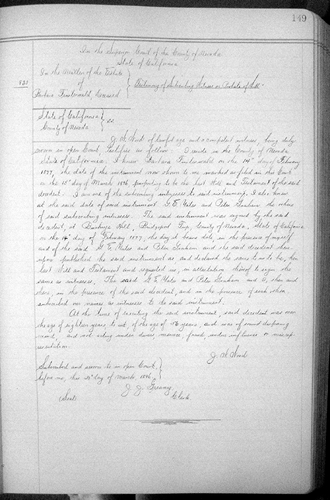 149
In the Superior Court of the County of Nevada
State of California
In the Matter of the Estate
of
Deceased
Testimony of Subscribing Witness on Probate of Will
State of California
County of Nevada
ss.
of lawful age and a competent witness being duly
sworn in open Court, testifies as follows: I reside in the County of Nevada,
State of California. I knew on the 14th day of February
the date of the instrument now shown to me marked as filed in this Court
on the day of March purporting to be the last Will and Testament of the said
decedent. I am one of the subscribing witnesses to said instrument. I also knew
at the said date of said instrument and Peter the others
of said subscribing witnesses. The said instrument was signed by the said
decedent, at Hill, Township, County of Nevada, State of California
on the 14th day of February the day it bears date, in the presence of myself
and of the said and Peter and the said decedent there
upon published the said instrument as and declared the same to be his
last Will and Testament and requested me, in attestation thereof to sign the
same as witness. The said and Peter and I, then and
there, in the presence of the said decedent, and in the presence of each other
subscribed our names as witnesses to the said instrument.
At the time of executing the said instrument, said decedent was over
the age of eighteen years to wit, of the age of years, and was of sound disposing
mind, and not acting under duress, menace, fraud, undue influence or misrep-
resentation.
Subscribed and sworn to in open Court,
before me, this day of March
(Seal)
Clerk